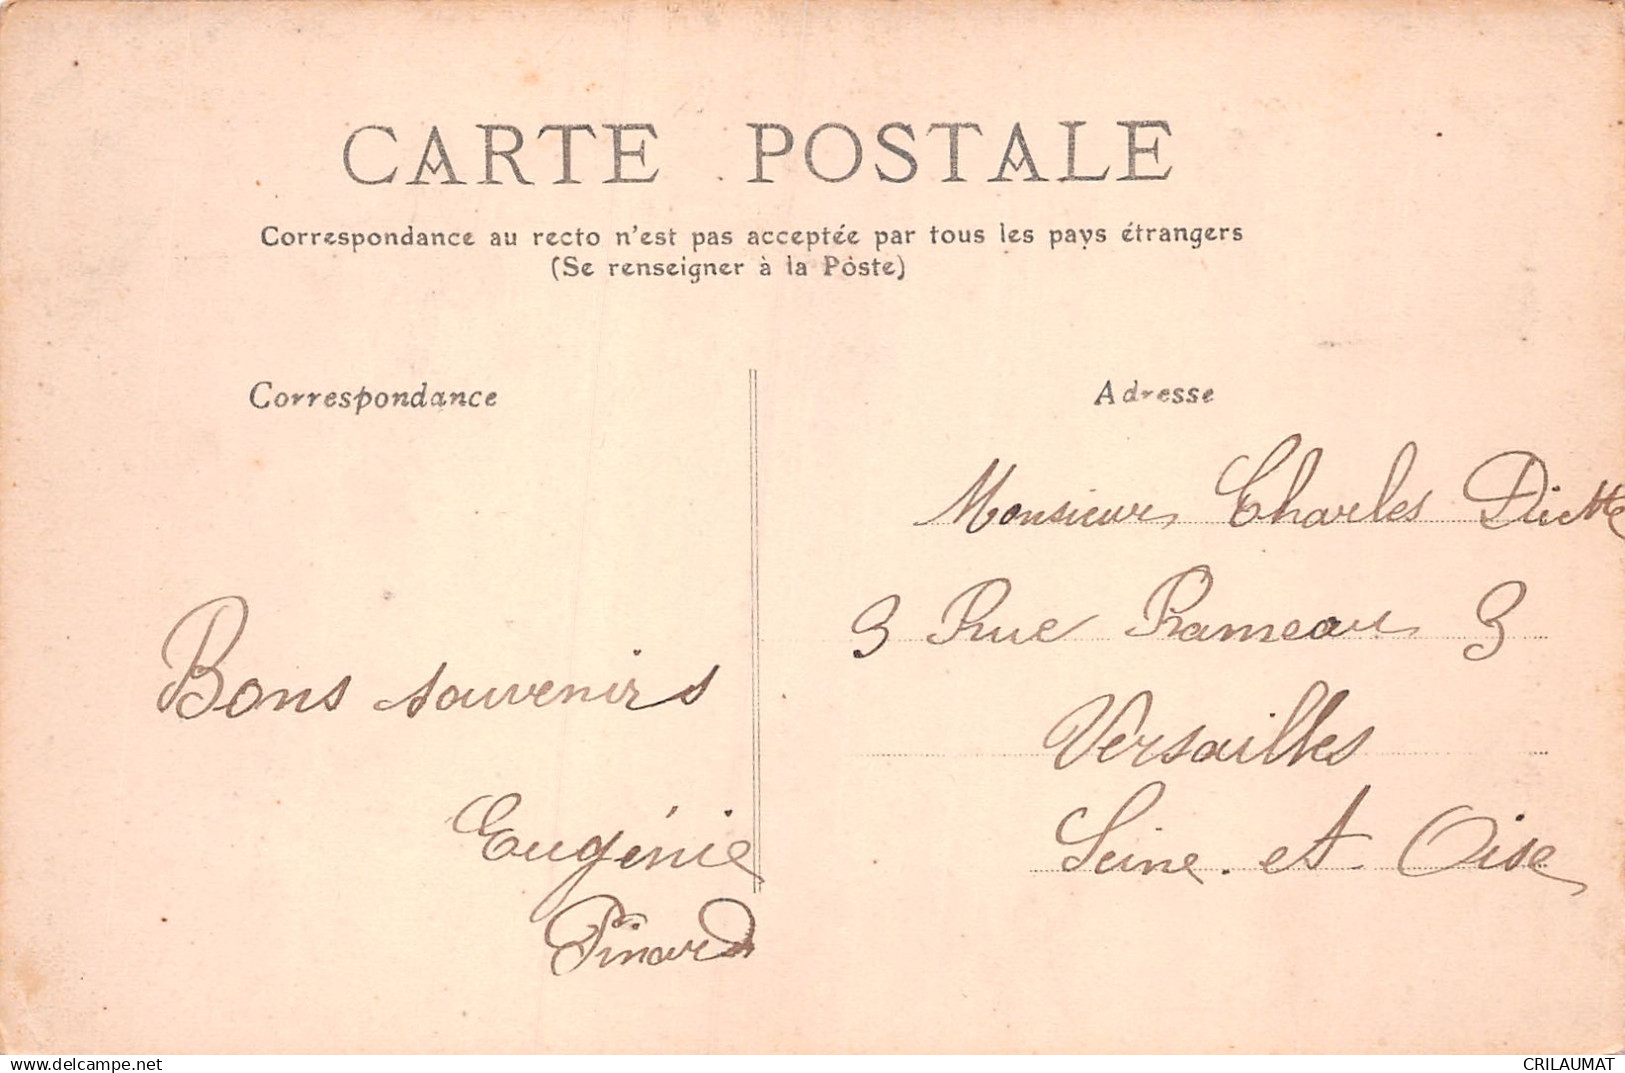 CARTE POSTALE
Correspondance au recto n'est pas acceptée par tous les pays étrangers
(Se renseigner à la Poste)
Correspondance
Adresse
Bons souvenirs
Eugénie
Pinard
Monsieur Charles
3 Rue Rameau 3
Versailles
Seine et Oise
delcampe.net
CRILAUMAT